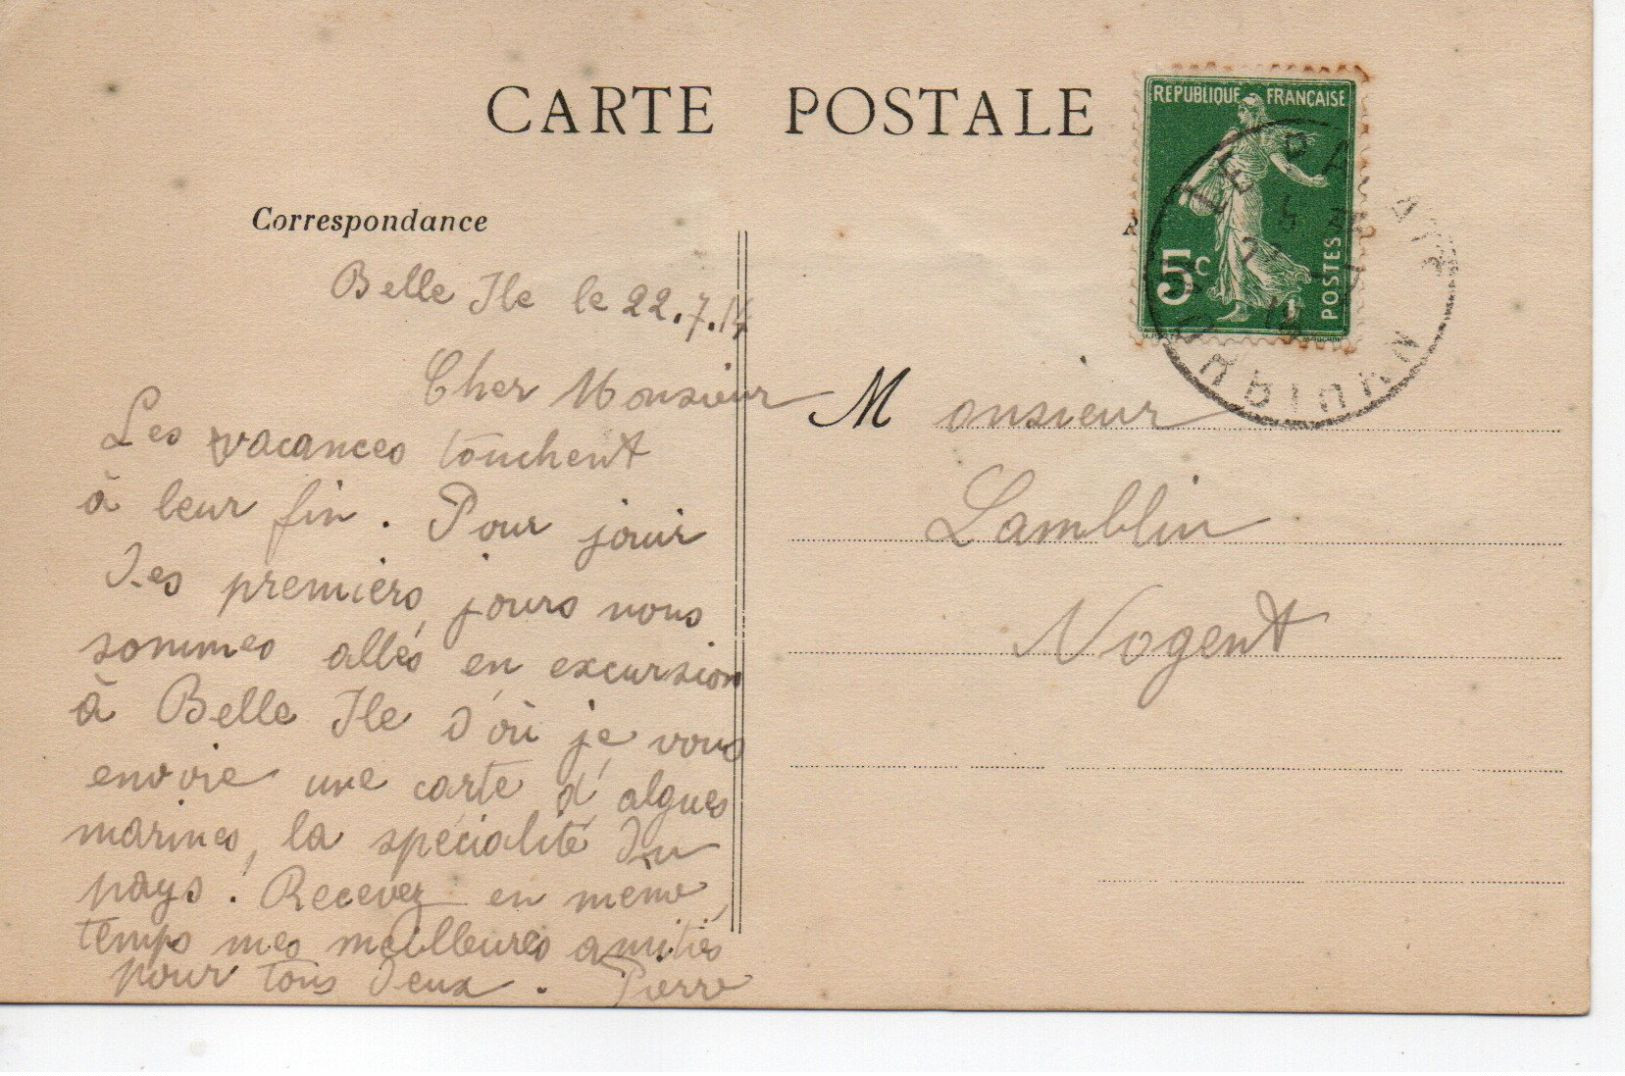 CARTE POSTALE
REPUBLIQUE FRANÇAISE
5c
POSTES
LE PALAIS
MORBIHAN
Correspondance
Belle Ile le 22.7.14
Cher Monsieur
Les vacances touchent
à leur fin. Pour jouir
des premiers jours nous
sommes allés en excursion
à Belle Ile d'où je vous
envoie une carte d'algues
marines, la spécialité du
pays. Recevez en même
temps mes meilleures amitiés
pour tous deux. Pierre
Monsieur
Lamblin
Nogent